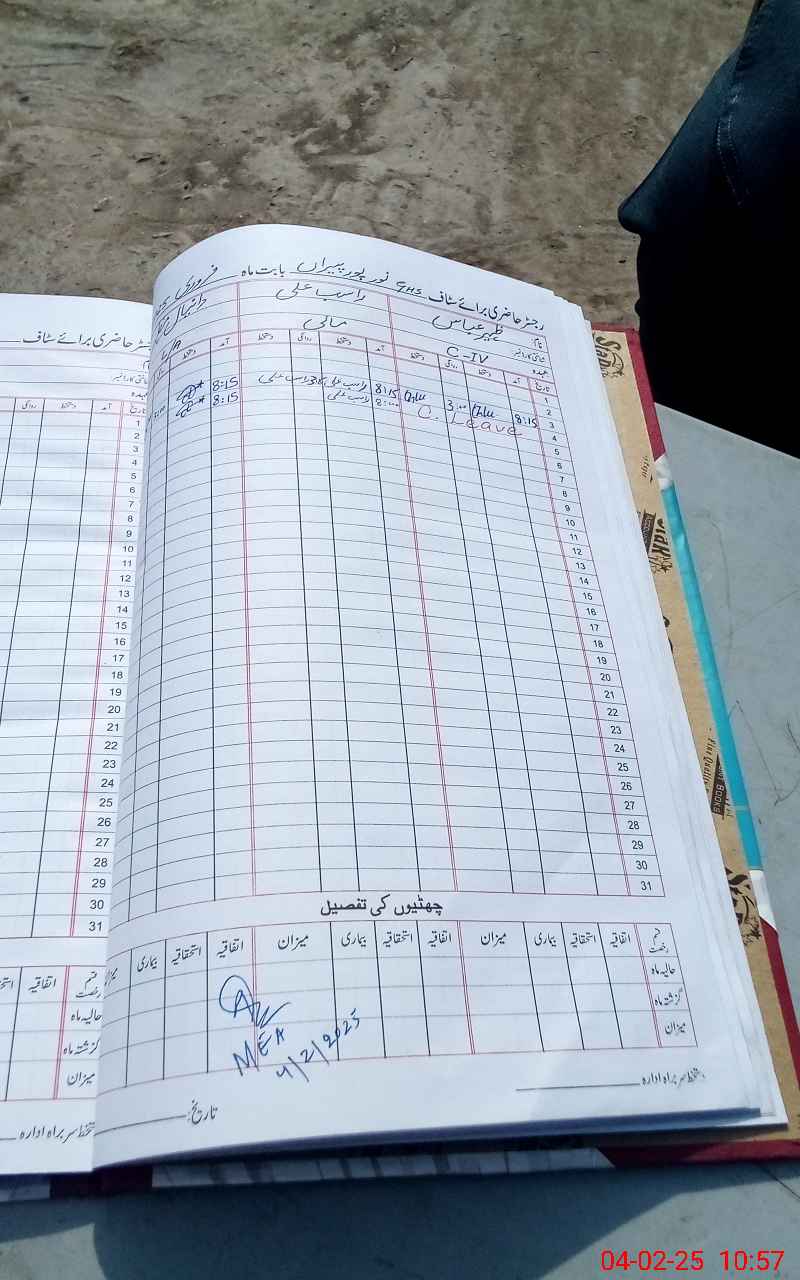 رجسٹر حاضری برائے سٹاف GHS نور پور پیراں بابت ماہ فروری
نام ظہیر عباس راسب علی دانیال
شناختی کارڈ نمبر
عہدہ C-IV مالی
تاریخ آمد دستخط روانگی دستخط آمد دستخط روانگی دستخط آمد دستخط
1
2
3 8:15 3:00 8:15 راسب علی راسب علی 8:15
4 C. Leave 8:00 راسب علی 8:15
5
6
7
8
9
10
11
12
13
14
15
16
17
18
19
20
21
22
23
24
25
26
27
28
29
30
31
چھٹیوں کی تفصیل
قسم رخصت اتفاقیہ استحقاقیہ بیماری میزان اتفاقیہ استحقاقیہ بیماری میزان اتفاقیہ استحقاقیہ بیماری میزان
حالیہ ماہ
گزشتہ ماہ
میزان
MEA
4/2/2025
دستخط سربراہ ادارہ
تاریخ:
رجسٹر حاضری برائے سٹاف
شناختی کارڈ نمبر
عہدہ
تاریخ آمد دستخط روانگی
1
2
3
4
5
6
7
8
9
10
11
12
13
14
15
16
17
18
19
20
21
22
23
24
25
26
27
28
29
30
31
قسم رخصت اتفاقیہ
حالیہ ماہ
گزشتہ ماہ
میزان
دستخط سربراہ ادارہ
BOOKS
04-02-25 10:57